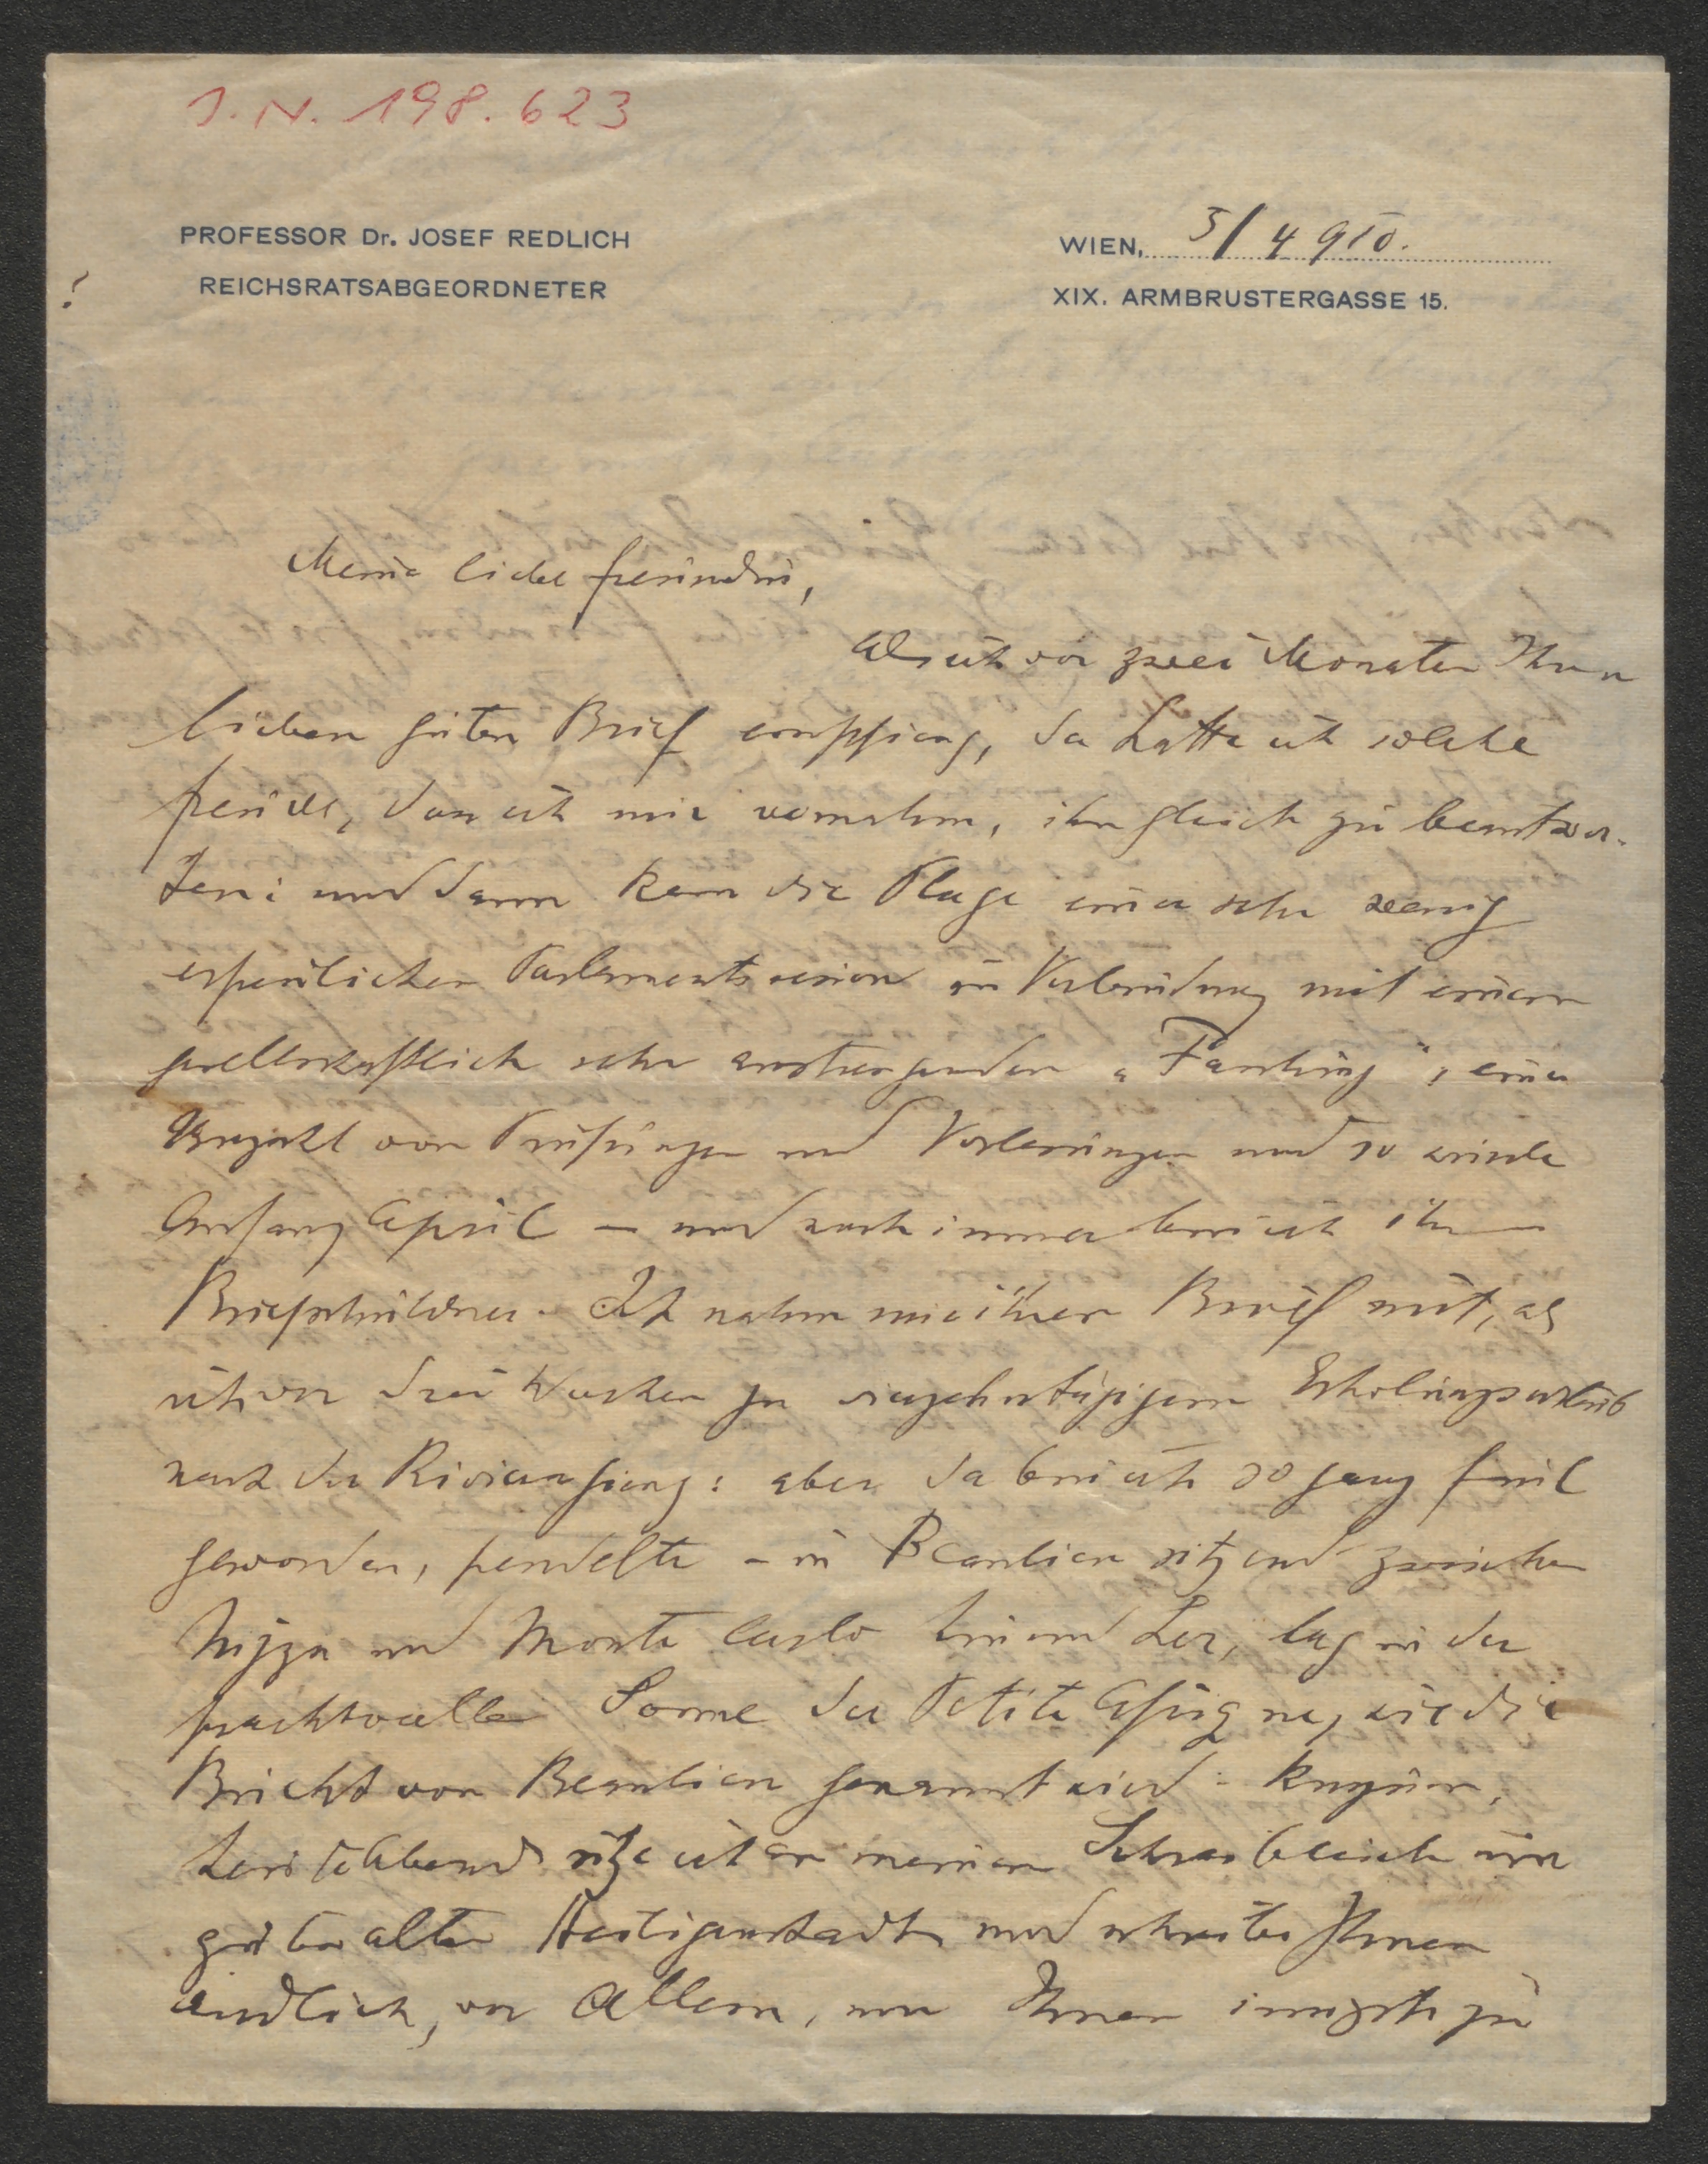 J.N. 198.623
PROFESSOR Dr. JOSEF REDLICH
REICHSRATSABGEORDNETER
WIEN, 3/4 910.
XIX. ARMBRUSTERGASSE 15.
?
Meine liebe Freundin,
Als ich vor zwei Monaten Ihren
lieben guten Brief empfieng, da hatte ich solche
Freude, dass ich mir vornahm, ihn gleich zu beantwor-
ten: und dann kam die Plage einer sehr wenig
erfreulichen Parlamentssession in Verbindung mit einem
gesellschaftlich sehr anstrengenden „Fasching“, einer
Unzahl von Prüfungen und Vorlesungen und so wurde
Anfang April – und noch immer bin ich Ihr
Briefschuldner. Ich nahm mir Ihren Brief mit, als
ich vor drei Wochen zu vierzehntägigem Erholungsurlaub
nach der Riviera gieng: aber da bin ich so ganz faul
geworden, pendelte – in Beaulieu sitzend zwischen
Nizza und Monte Carlo hin und her, lag in der
prachtvollen Sonne der Petite Afrique, wie die
Bucht von Beaulieu genannt wird: kurzum,
heute Abend sitze ich an meinem Schreibtisch im
guten alten Heiligenstadt und schreibe Ihnen
endlich, vor Allem, um Ihnen innigst zu